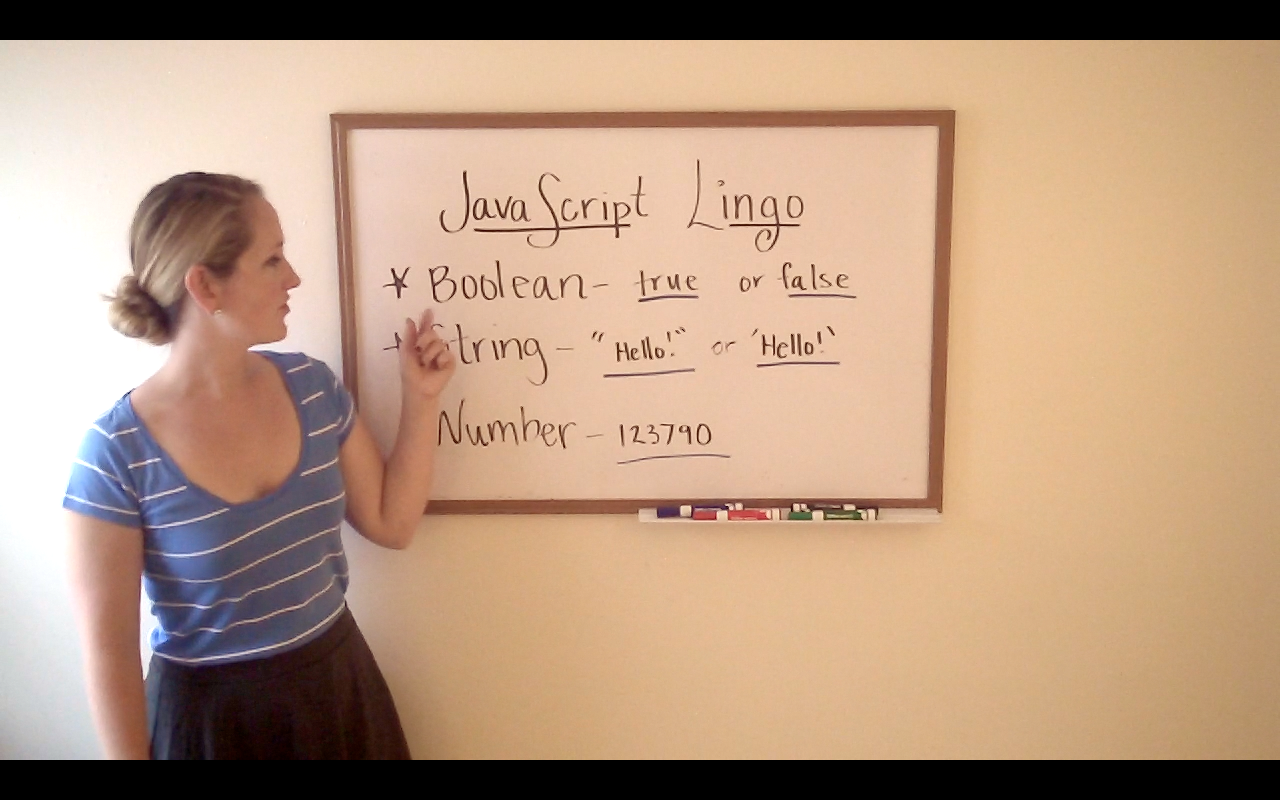 JavaScript Lingo
* Boolean - true or false
* String - "Hello!" or 'Hello!'
Number - 123790